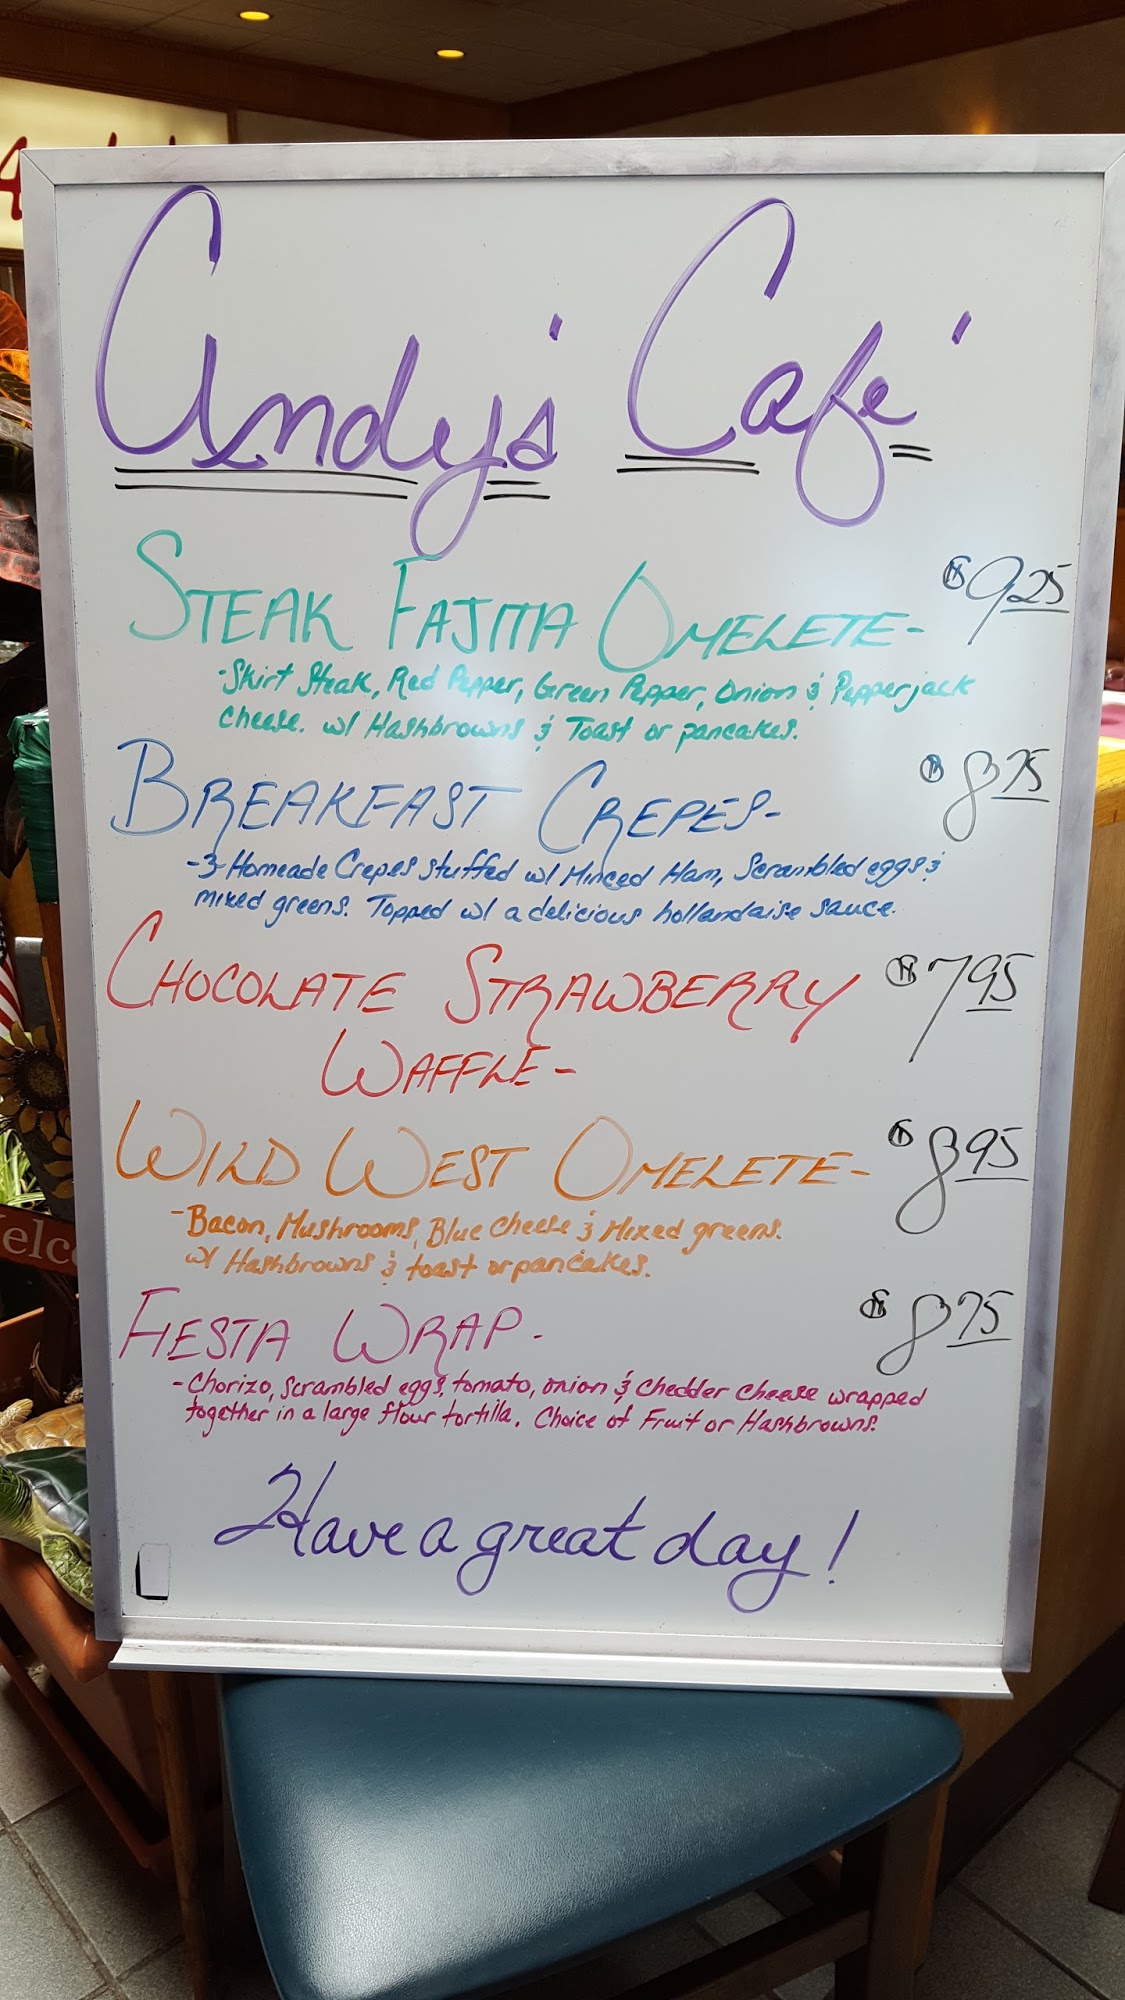 Andy's Café
STEAK FAJITA OMELETE- $9.25
-Skirt Steak, Red Pepper, Green Pepper, Onion & Pepperjack
Cheese. w/ Hashbrowns & Toast or pancakes.
BREAKFAST CREPES- $8.75
-3 Homeade Crepes stuffed w/ Minced Ham, Scrambled eggs &
mixed greens. Topped w/ a delicious hollandaise sauce.
CHOCOLATE STRAWBERRY $7.95
WAFFLE-
WILD WEST OMELETE- $8.95
-Bacon, Mushrooms, Blue Cheese & Mixed greens.
w/ Hashbrowns & toast or pancakes.
FIESTA WRAP- $8.75
-Chorizo, Scrambled eggs, tomato, onion & Chedder Cheese wrapped
together in a large flour tortilla. Choice of Fruit or Hashbrowns.
Have a great day!